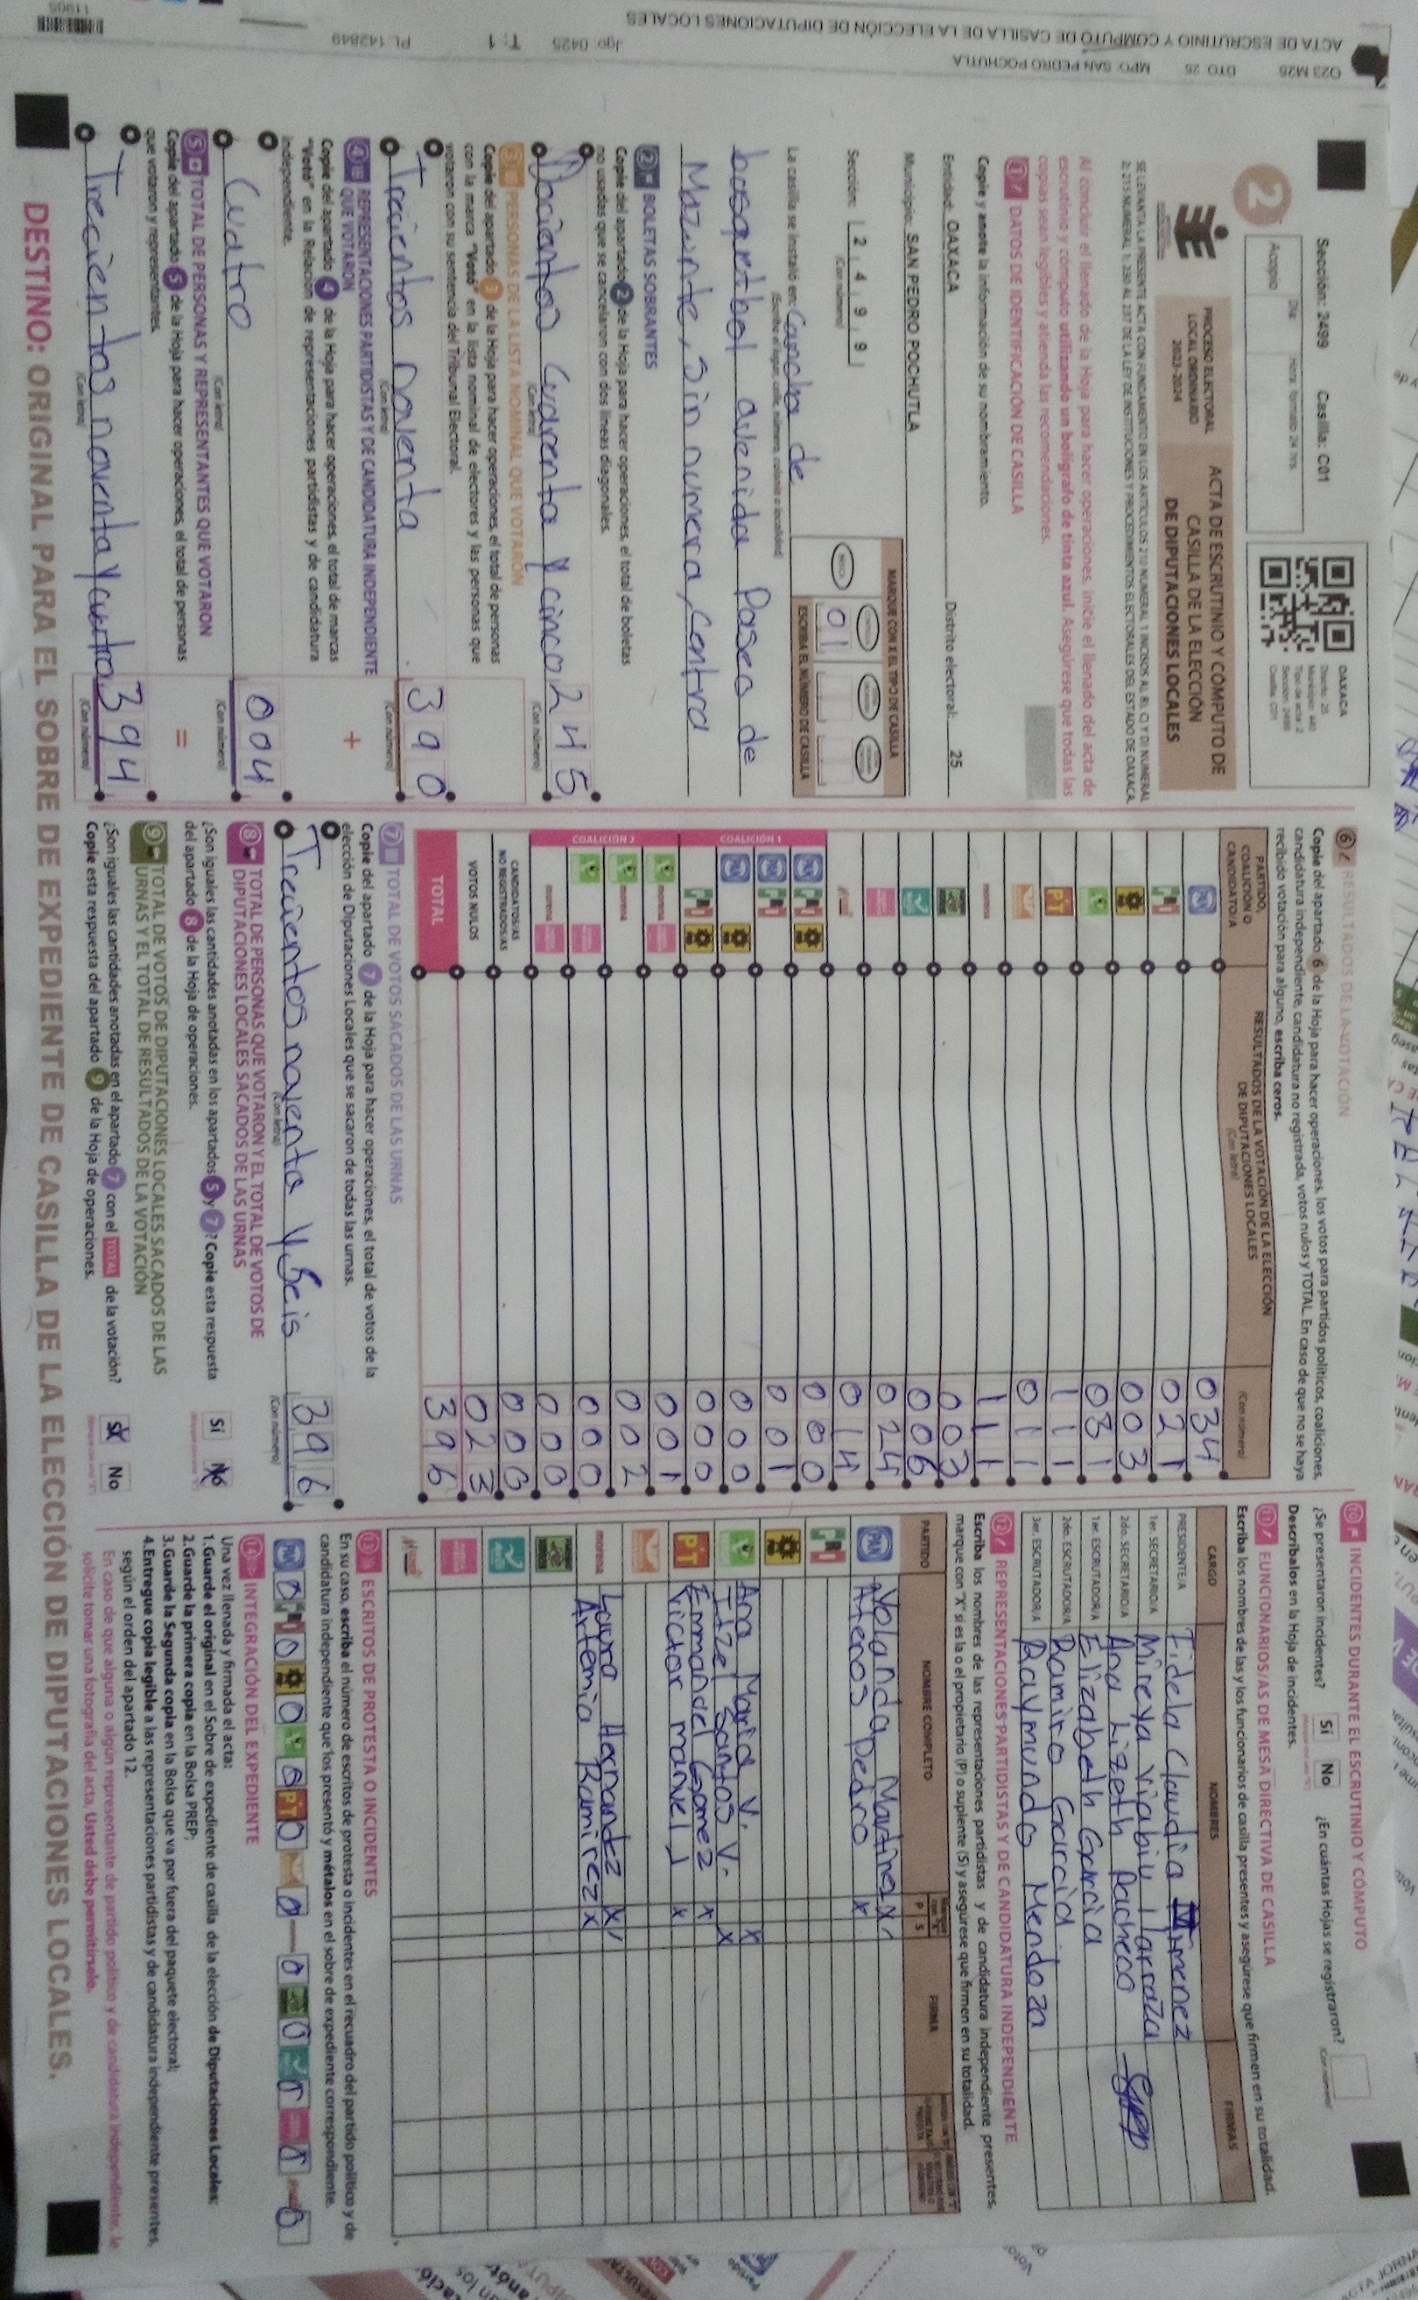 023 M25 DTO 25 MPO: SAN PEDRO POCHUTLA
ACTA DE ESCRUTINIO Y CÓMPUTO DE CASILLA DE LA ELECCIÓN DE DIPUTACIONES LOCALES
Jgo: 0425 T: 1 PL 142849
11905
Sección: 2499 Casilla: C01
2
Acopio
Día Hora: formato 24 hrs.
OAXACA
Distrito: 25
PROCESO ELECTORAL
LOCAL ORDINARIO
2023-2024
ACTA DE ESCRUTINIO Y CÓMPUTO DE
CASILLA DE LA ELECCIÓN
DE DIPUTACIONES LOCALES
Al concluir el llenado de la Hoja para hacer operaciones, inicie el llenado del acta de
escrutinio y cómputo utilizando un bolígrafo de tinta azul. Asegúrese que todas las
copias sean legibles y atienda las recomendaciones.
1 DATOS DE IDENTIFICACIÓN DE CASILLA
Copie y anote la información de su nombramiento.
Entidad: OAXACA Distrito electoral: 25
Municipio: SAN PEDRO POCHUTLA
Sección: 2 4 9 9
(Con número)
MARQUE CON X EL TIPO DE CASILLA
01
ESCRIBA EL NÚMERO DE CASILLA
La casilla se instaló en: Cancha de
(Escriba el lugar, calle, número, colonia o localidad)
basquetbol avenida Paseo de
Mazunte, sin numero, Centro
2 BOLETAS SOBRANTES
Copie del apartado 2 de la Hoja para hacer operaciones, el total de boletas
no usadas que se cancelaron con dos líneas diagonales.
Docientos Cuarenta y cinco 245
(Con letra) (Con número)
3 PERSONAS DE LA LISTA NOMINAL QUE VOTARON
Copie del apartado 3 de la Hoja para hacer operaciones, el total de personas
con la marca "Votó" en la lista nominal de electores y las personas que
votaron con su sentencia del Tribunal Electoral.
Trecientos noventa 390
(Con letra) (Con número)
4 REPRESENTACIONES PARTIDISTAS Y DE CANDIDATURA INDEPENDIENTE
QUE VOTARON
Copie del apartado 4 de la Hoja para hacer operaciones, el total de marcas
"Votó" en la Relación de representaciones partidistas y de candidatura
independiente.
+
Cuatro 004
(Con letra) (Con número)
5 TOTAL DE PERSONAS Y REPRESENTANTES QUE VOTARON
Copie del apartado 5 de la Hoja para hacer operaciones, el total de personas
que votaron y representantes.
=
Trecientos noventa y cuatro 394
(Con letra) (Con número)
6 RESULTADOS DE LA VOTACIÓN
Copie del apartado 6 de la Hoja para hacer operaciones, los votos para partidos políticos, coaliciones,
candidatura independiente, candidatura no registrada, votos nulos y TOTAL. En caso de que no se haya
recibido votación para alguno, escriba ceros.
PARTIDO,
COALICIÓN O
CANDIDATO/A
RESULTADOS DE LA VOTACIÓN DE LA ELECCIÓN
DE DIPUTACIONES LOCALES
(Con letra) (Con número)
PAN 034
PRI 021
PRD 003
031
PT 111
011
morena 111
003
006
024
014
COALICIÓN 1
PAN PRI PRD 000
PAN PRI 001
PAN PRD 000
PRI PRD 000
COALICIÓN 2
morena 001
morena 002
000
morena 000
CANDIDATOS/AS
NO REGISTRADOS/AS 000
VOTOS NULOS 023
TOTAL 396
7 TOTAL DE VOTOS SACADOS DE LAS URNAS
Copie del apartado 7 de la Hoja para hacer operaciones, el total de votos de la
elección de Diputaciones Locales que se sacaron de todas las urnas.
Trecientos noventa y Seis 396
(Con letra) (Con número)
8 TOTAL DE PERSONAS QUE VOTARON Y EL TOTAL DE VOTOS DE
DIPUTACIONES LOCALES SACADOS DE LAS URNAS
¿Son iguales las cantidades anotadas en los apartados 5 y 7? Copie esta respuesta
del apartado 8 de la Hoja de operaciones.
Sí No
9 TOTAL DE VOTOS DE DIPUTACIONES LOCALES SACADOS DE LAS
URNAS Y EL TOTAL DE RESULTADOS DE LA VOTACIÓN
¿Son iguales las cantidades anotadas en el apartado 7 con el TOTAL de la votación?
Copie esta respuesta del apartado 9 de la Hoja de operaciones.
Sí No
10 INCIDENTES DURANTE EL ESCRUTINIO Y CÓMPUTO
¿Se presentaron incidentes? Sí No ¿En cuántas Hojas se registraron?
Descríbalos en la Hoja de incidentes.
11 FUNCIONARIOS/AS DE MESA DIRECTIVA DE CASILLA
Escriba los nombres de las y los funcionarios de casilla presentes y asegúrese que firmen en su totalidad.
CARGO NOMBRES FIRMAS
PRESIDENTE/A Fidela Claudia Jimenez
1er. SECRETARIO/A Mireya Viabiu Larraza
2do. SECRETARIO/A Ana Lizeth Pacheco
1er. ESCRUTADOR/A Elizabeth Garcia
2do. ESCRUTADOR/A Ramiro Garcia
3er. ESCRUTADOR/A Raymundo Mendoza
12 REPRESENTACIONES PARTIDISTAS Y DE CANDIDATURA INDEPENDIENTE
Escriba los nombres de las representaciones partidistas y de candidatura independiente presentes,
marque con "X" si es la o el propietario (P) o suplente (S) y asegúrese que firmen en su totalidad.
PARTIDO NOMBRE COMPLETO P S FIRMA
PAN Yolanda Martinez X
Atenos Pedro X
PRI
PRD
Ana Maria V. X
Itzel Santos V. X
PT Emmanuel Gomez X
Victor manuel J X
morena Laura Hernandez X
Artemia Ramirez X
13 ESCRITOS DE PROTESTA O INCIDENTES
En su caso, escriba el número de escritos de protesta o incidentes en el recuadro del partido político y de
candidatura independiente que los presentó y métalos en el sobre de expediente correspondiente.
PAN 0 PRI 0 PRD 0 0 PT 0 0 0 0 0 0 0
14 INTEGRACIÓN DEL EXPEDIENTE
Una vez llenada y firmada el acta:
1.Guarde el original en el Sobre de expediente de casilla de la elección de Diputaciones Locales;
2.Guarde la primera copia en la Bolsa PREP;
3.Guarde la Segunda copia en la Bolsa que va por fuera del paquete electoral;
4.Entregue copia legible a las representaciones partidistas y de candidatura independiente presentes,
según el orden del apartado 12.
En caso de que alguna o algún representante de partido político y de candidatura independiente, le
solicite tomar una fotografía del acta, Usted debe permitírselo.
DESTINO: ORIGINAL PARA EL SOBRE DE EXPEDIENTE DE CASILLA DE LA ELECCIÓN DE DIPUTACIONES LOCALES.